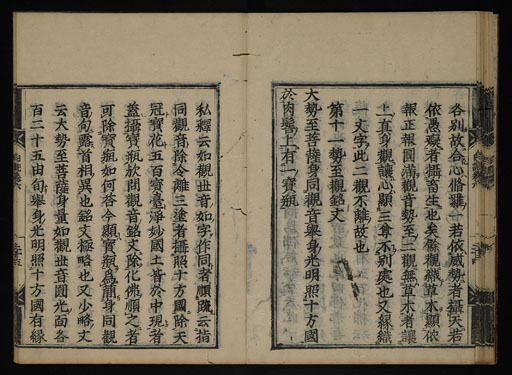 各別故合心脩羅一若依威勢者攝天若
依愚癡者攝畜生也矣餘觀織草木顯依
報正報圓滿觀音勢至二觀無草木者讓
上真身觀讓心顯三尊不別處也又緣織
一文字此二觀不離故也
第十一勢至觀銘文
大勢至菩薩身同觀音舉身光明照十方國
於肉髻上有一寶瓶
私釋云如觀世音如字作同者順䟽云指
同觀音除令離三塗者攝照十方國除天
冠寶花五百寶臺淨妙國土皆於中現者
蓋攝寶瓶欤問觀音銘文除化佛順之者
可除寶瓶如何答今顯寶瓶為層身同觀
音句露首相異也銘文極略也又少略文
云大勢至菩薩身量如觀世音圓光面各
百二十五由旬舉身光明照十方國有緣